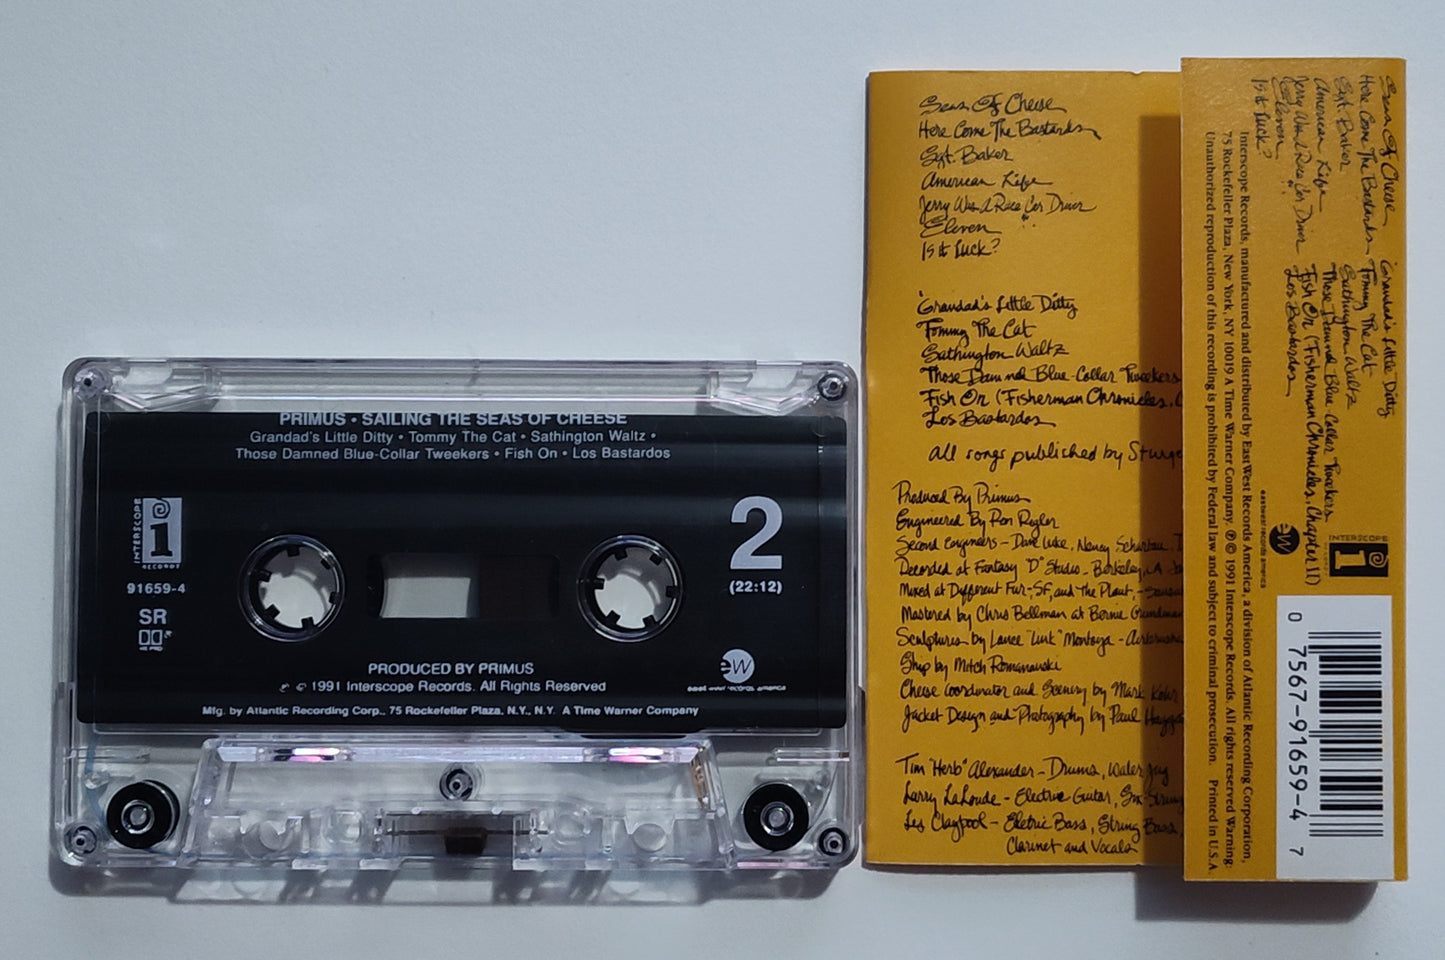 PRIMUS • SAILING THE SEAS OF CHEESE
Grandad's Little Ditty • Tommy The Cat • Sathington Waltz •
Those Damned Blue-Collar Tweekers • Fish On • Los Bastardos
INTERSCOPE
RECORDS
91659-4
SR
2
(22:12)
PRODUCED BY PRIMUS
℗ © 1991 Interscope Records. All Rights Reserved
east west records america
Mfg. by Atlantic Recording Corp., 75 Rockefeller Plaza, N.Y., N.Y. A Time Warner Company
Seas Of Cheese
Here Come The Bastards
Sgt. Baker
American Life
Jerry Was A Race Car Driver
Eleven
Is it Luck?
Grandad's Little Ditty
Tommy The Cat
Sathington Waltz
Those Damned Blue-Collar Tweekers
Fish On (Fisherman Chronicles,
Los Bastardos
all songs published by
Produced By Primus
Engineered By Ron Rigler
Second Engineers - Dave Luke, Nancy
Recorded at Fantasy "D" Studio - Berkeley,
Mixed at Different Fur, SF, and The Plant, -
Mastered by Chris Bellman at Bernie Grundman
Sculptures by Lance "Link" Montoya -
Ship by Mitch Romanauski
Cheese Coordinator and Scenery by Mark
Jacket Design and Photography by Paul
Tim "Herb" Alexander - Drums, Water Jug
Larry LaLonde - Electric Guitar, Six-String
Les Claypool - Eletric Bass, String Bass,
Clarinet and Vocals
Seas Of Cheese
Here Come The Bastards
Sgt. Baker
American Life
Jerry Was A Race Car Driver
Eleven
Is it Luck?
Grandad's Little Ditty
Tommy The Cat
Sathington Waltz
Those Damned Blue-Collar Tweekers
Fish On (Fisherman Chronicles, Chapter II)
Los Bastardos
eastwest records america
INTERSCOPE
RECORDS
Interscope Records, manufactured and distributed by EastWest Records America, a division of Atlantic Recording Corporation,
75 Rockefeller Plaza, New York, NY 10019 A Time Warner Company. ℗ © 1991 Interscope Records. All rights reserved Warning:
Unauthorized reproduction of this recording is prohibited by Federal law and subject to criminal prosecution. Printed in U.S.A.
0 7567-91659-4 7